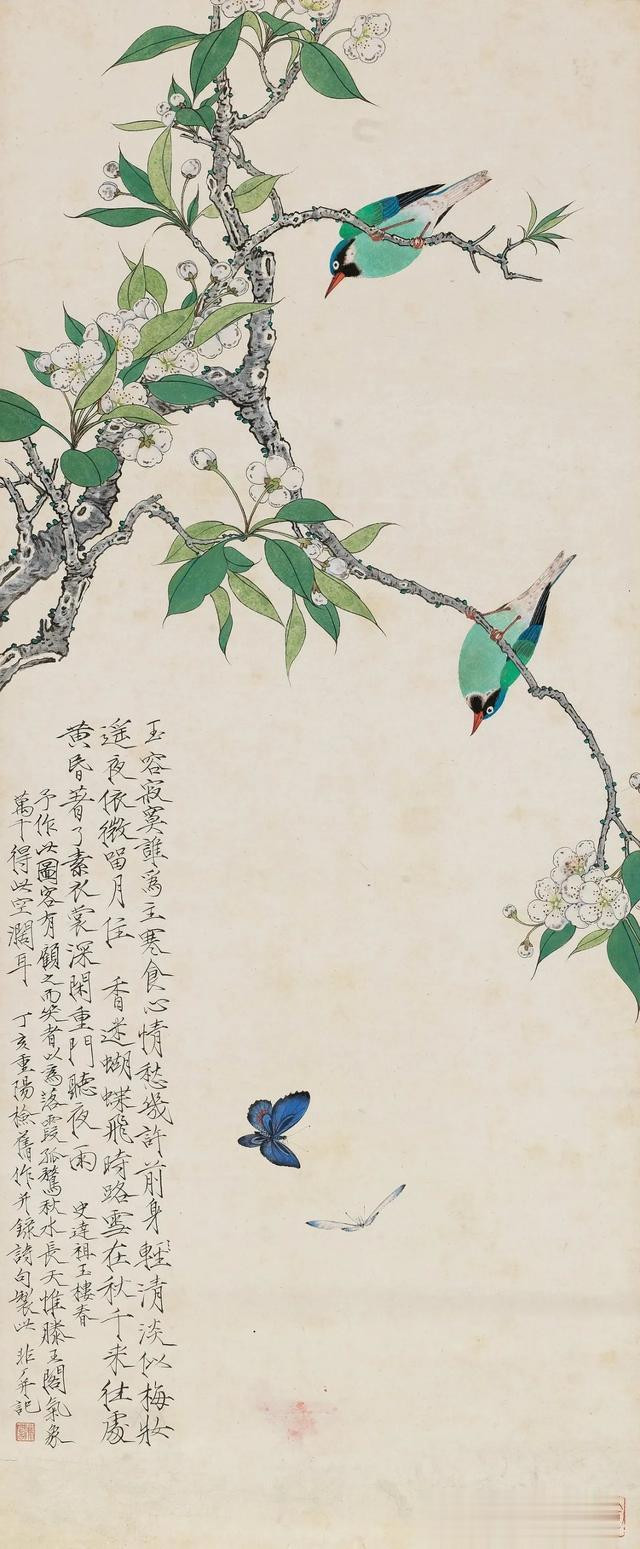 玉容寂寞誰為主寒食心情愁幾許前身輕清淡似梅妝
遥夜依微留月住 香迷蝴蝶飛時路雪在秋千来往處
黄昏著了素衣裳深閉重門聽夜雨 史達祖玉樓春
予作此圖客有顧之而笑者以為落霞孤鶩秋水長天惟滕王閣氣象
萬千得此空濶耳 丁亥重陽檢舊作并錄詩句製此 非 記